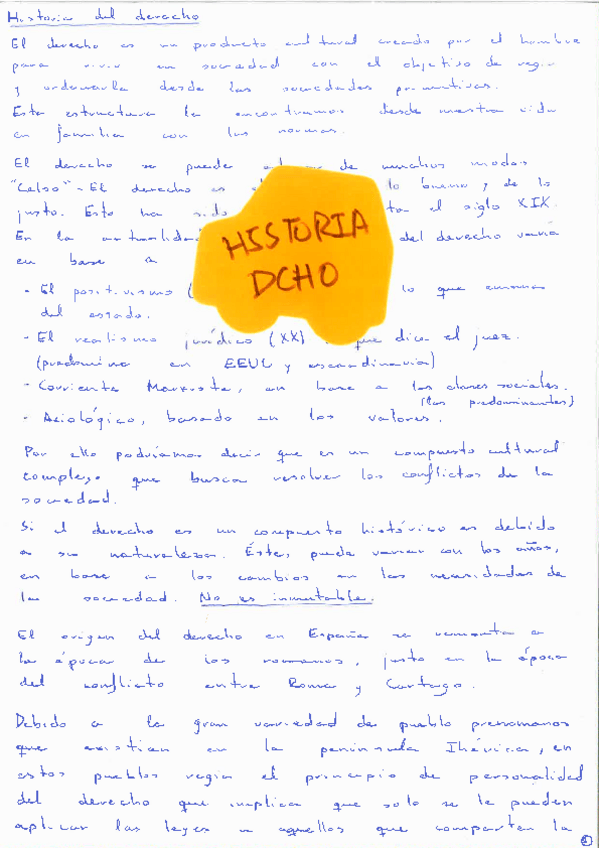 Historia del derecho
El derecho es un producto cultural creado por el hombre
para vivir en sociedad con el objetivo de regir
y ordenarla desde las sociedades primitivas.
Esta estructura la encontramos desde nuestra vida
en familia con las normas.
El derecho se puede de muchos modos
"Celso" - El derecho es lo bueno y de lo
justo. Esto ha sido el siglo XIX.
En la actualidad del derecho varía
en base a
HISTORIA
DCHO
- El positivismo ( lo que emana
del estado.
- El realismo jurídico (XX) que dice el juez.
(predomina en EEUU y escandinavia)
- Corriente Marxista, en base a las clases sociales.
(las predominantes)
- Axiológico, basado en los valores.
Por ello podríamos decir que es un compuesto cultural
complejo que busca resolver los conflictos de la
sociedad.
Si el derecho es un compuesto histórico es debido
a su naturaleza. Éste, puede variar con los años,
en base a los cambios en las necesidades de
la sociedad. No es inmutable.
El origen del derecho en España se remonta a
la época de los romanos, justo en la época
del conflicto entre Roma y Cartago.
Debido a la gran variedad de pueblo prerromanos
que existían en la península Ibérica, en
estos pueblos regía el principio de personalidad
del derecho que implica que solo se le pueden
aplicar las leyes a aquellos que comparten la